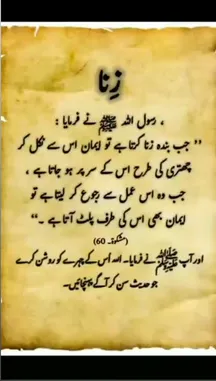 زِنا
، رسول اللہ ﷺ نے فرمایا :
” جب بندہ زنا کرتا ہے تو ایمان اس سے نکل کر
چھتری کی طرح اس کے سر پر ہو جاتا ہے ،
جب وہ اس عمل سے رجوع کر لیتا ہے تو
ایمان بھی اس کی طرف پلٹ آتا ہے ۔“
(مشکوٰۃ۔ 60)
اور آپ ﷺ نے فرمایا۔ اللہ اُس کے چہرے کو روشن کرے
جو حدیث سن کر آگے پہنچائیں۔